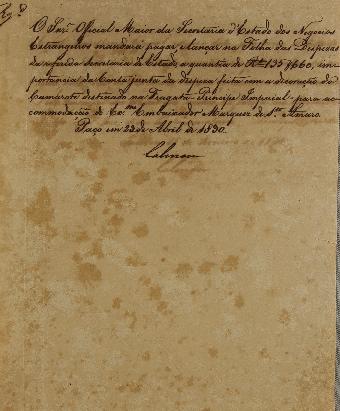 O Snr. Official Maior da Secretaria d'Estado dos Negocios
Estrangeiros mandará pagar, e lançar na Folha das Despezas
da referida Secretaria de Estado a quantia de Rs. 135$660, im-
portancia da Conta junta da despeza feita com a decoração do
Camarote destinado na Fragata - Principe Imperial - para ac-
commodação do Exmo. Embaixador Marquez de Sto. Amaro.
Paço em 22 de Abril de 1830.
Calmon